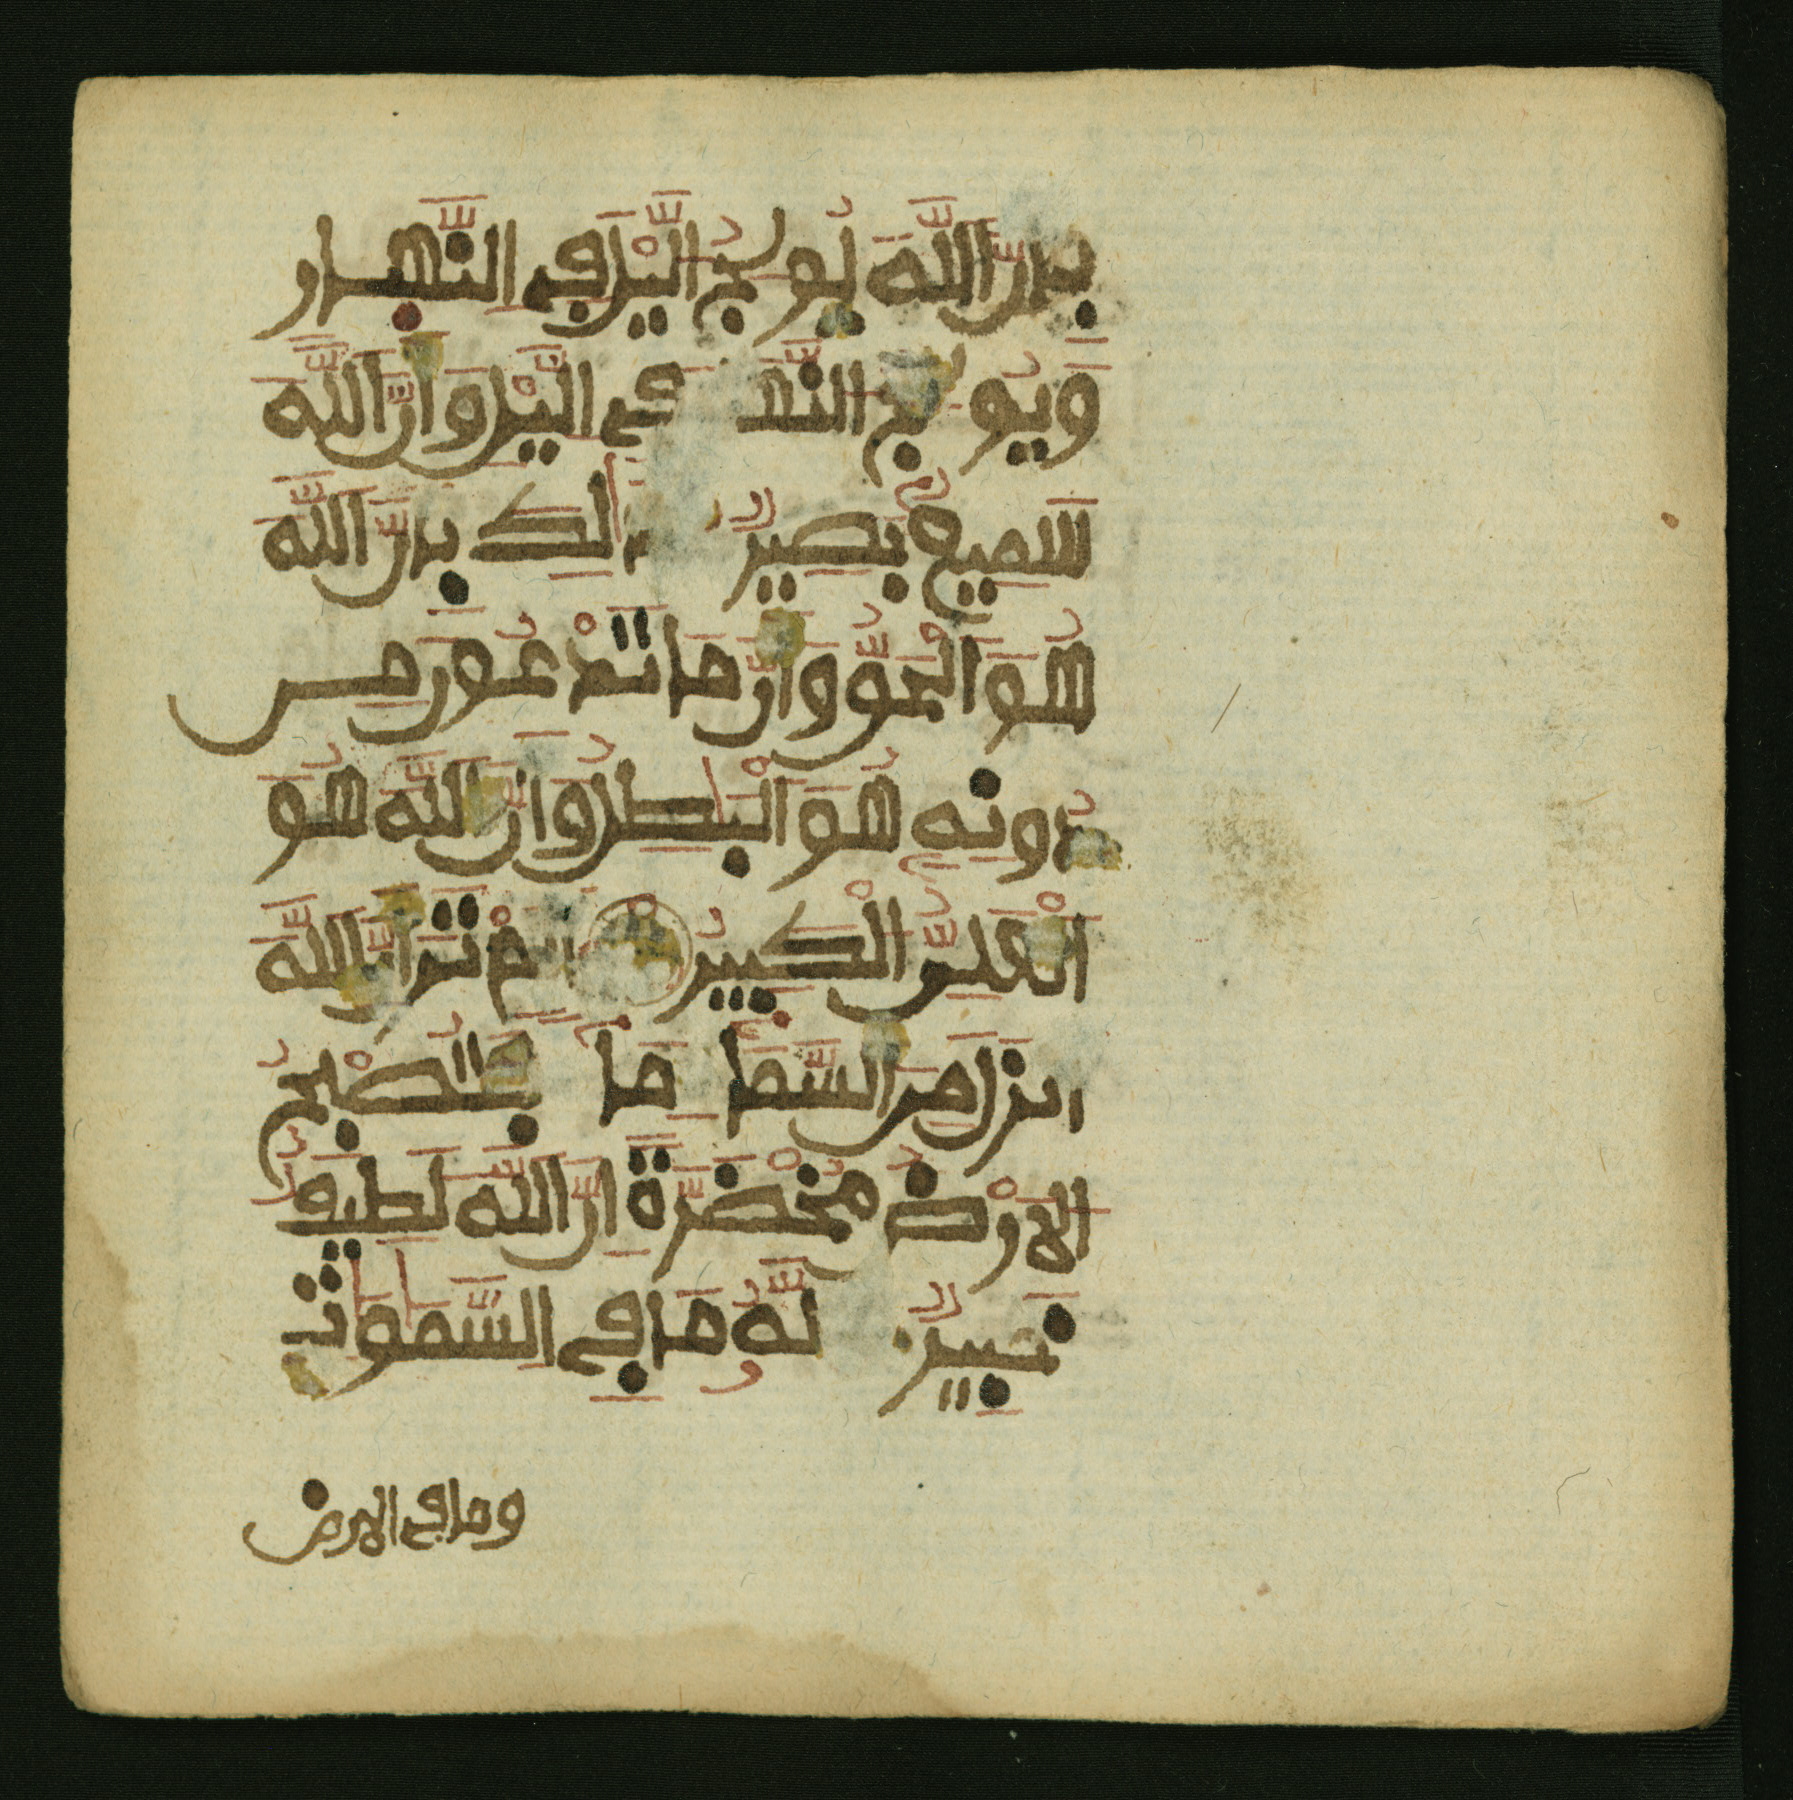 بِأَنَّ اللَّهَ يُولِجُ الَّيْلَ فِي النَّهَارِ
وَيُولِجُ النَّهَارَ فِي الَّيْلِ وَأَنَّ اللَّهَ
سَمِيعٌ بَصِيرٌ ذَٰلِكَ بِأَنَّ اللَّهَ
هُوَ الْحَقُّ وَأَنَّ مَا تَدْعُونَ مِن
دُونِهِ هُوَ الْبَٰطِلُ وَأَنَّ اللَّهَ هُوَ
الْعَلِيُّ الْكَبِيرُ أَلَمْ تَرَ أَنَّ اللَّهَ
أَنزَلَ مِنَ السَّمَاءِ مَاءً فَتُصْبِحُ
الْأَرْضُ مُخْضَرَّةً إِنَّ اللَّهَ لَطِيفٌ
خَبِيرٌ لَّهُ مَا فِي السَّمَٰوَٰتِ
وما في الارض